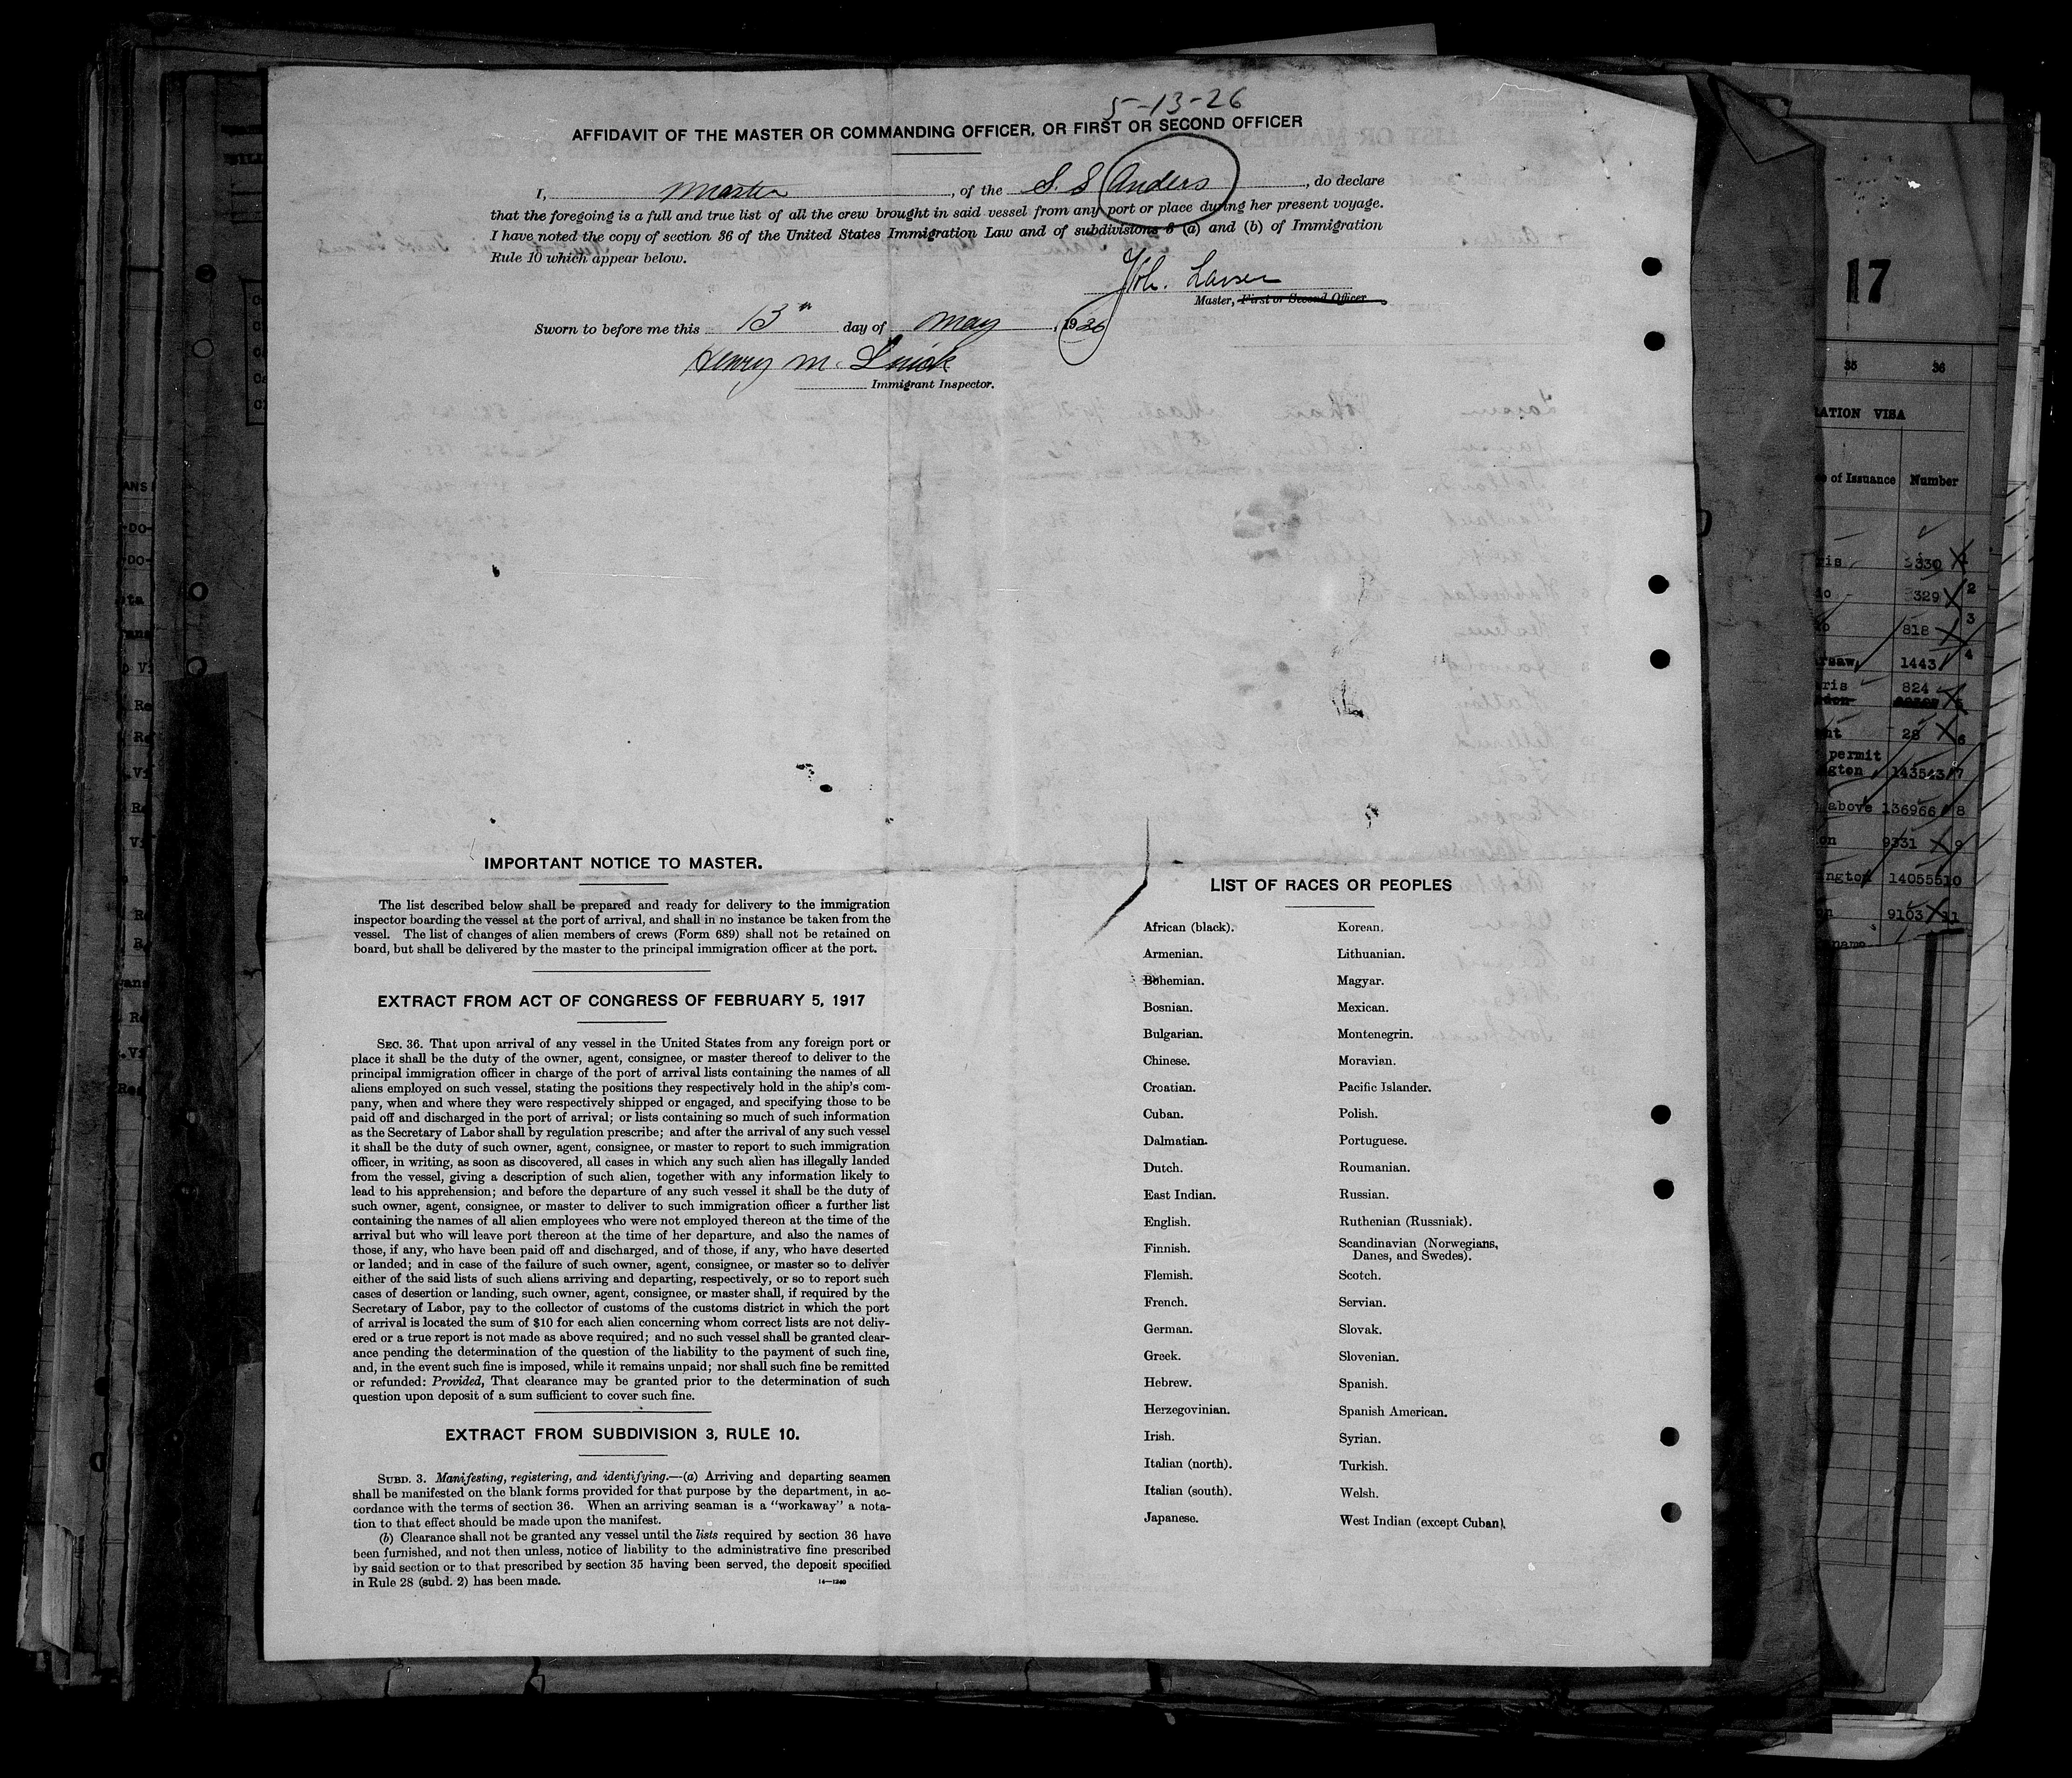 5-13-26
AFFIDAVIT OF THE MASTER OR COMMANDING OFFICER, OR FIRST OR SECOND OFFICER
I, Master, of the S. S Anders, do declare
that the foregoing is a full and true list of all the crew brought in said vessel from any port or place during her present voyage.
I have noted the copy of section 36 of the United States Immigration Law and of subdivisions 3 (a) and (b) of Immigration
Rule 10 which appear below.
Joh. Larsen
Master, First or Second Officer
Sworn to before me this 13th day of May, 1926
Henry M.
Immigrant Inspector.
IMPORTANT NOTICE TO MASTER.
The list described below shall be prepared and ready for delivery to the immigration
inspector boarding the vessel at the port of arrival, and shall in no instance be taken from the
vessel. The list of changes of alien members of crews (Form 689) shall not be retained on
board, but shall be delivered by the master to the principal immigration officer at the port.
EXTRACT FROM ACT OF CONGRESS OF FEBRUARY 5, 1917
SEC. 36. That upon arrival of any vessel in the United States from any foreign port or
place it shall be the duty of the owner, agent, consignee, or master thereof to deliver to the
principal immigration officer in charge of the port of arrival lists containing the names of all
aliens employed on such vessel, stating the positions they respectively hold in the ship's com-
pany, when and where they were respectively shipped or engaged, and specifying those to be
paid off and discharged in the port of arrival; or lists containing so much of such information
as the Secretary of Labor shall by regulation prescribe; and after the arrival of any such vessel
it shall be the duty of such owner, agent, consignee, or master to report to such immigration
officer, in writing, as soon as discovered, all cases in which any such alien has illegally landed
from the vessel, giving a description of such alien, together with any information likely to
lead to his apprehension; and before the departure of any such vessel it shall be the duty of
such owner, agent, consignee, or master to deliver to such immigration officer a further list
containing the names of all alien employees who were not employed thereon at the time of the
arrival but who will leave port thereon at the time of her departure, and also the names of
those, if any, who have been paid off and discharged, and of those, if any, who have deserted
or landed; and in case of the failure of such owner, agent, consignee, or master so to deliver
either of the said lists of such aliens arriving and departing, respectively, or so to report such
cases of desertion or landing, such owner, agent, consignee, or master shall, if required by the
Secretary of Labor, pay to the collector of customs of the customs district in which the port
of arrival is located the sum of $10 for each alien concerning whom correct lists are not deliv-
ered or a true report is not made as above required; and no such vessel shall be granted clear-
ance pending the determination of the question of the liability to the payment of such fine,
and, in the event such fine is imposed, while it remains unpaid; nor shall such fine be remitted
or refunded: Provided, That clearance may be granted prior to the determination of such
question upon deposit of a sum sufficient to cover such fine.
EXTRACT FROM SUBDIVISION 3, RULE 10.
SUBD. 3. Manifesting, registering, and identifying.—(a) Arriving and departing seamen
shall be manifested on the blank forms provided for that purpose by the department, in ac-
cordance with the terms of section 36. When an arriving seaman is a "workaway" a nota-
tion to that effect should be made upon the manifest.
(b) Clearance shall not be granted any vessel until the lists required by section 36 have
been furnished, and not then unless, notice of liability to the administrative fine prescribed
by said section or to that prescribed by section 35 having been served, the deposit specified
in Rule 28 (subd. 2) has been made.
14—1240
LIST OF RACES OR PEOPLES
African (black).
Armenian.
Bohemian.
Bosnian.
Bulgarian.
Chinese.
Croatian.
Cuban.
Dalmatian.
Dutch.
East Indian.
English.
Finnish.
Flemish.
French.
German.
Greek.
Hebrew.
Herzegovinian.
Irish.
Italian (north).
Italian (south).
Japanese.
Korean.
Lithuanian.
Magyar.
Mexican.
Montenegrin.
Moravian.
Pacific Islander.
Polish.
Portuguese.
Roumanian.
Russian.
Ruthenian (Russniak).
Scandinavian (Norwegians,
Danes, and Swedes).
Scotch.
Servian.
Slovak.
Slovenian.
Spanish.
Spanish American.
Syrian.
Turkish.
Welsh.
West Indian (except Cuban).
17
35 36
RATION VISA
of Issuance Number
330 1
329 2
818 3
1443 4
824
28 6
permit
143543 7
above 136966 8
9331 9
140555 10
9103 11
name